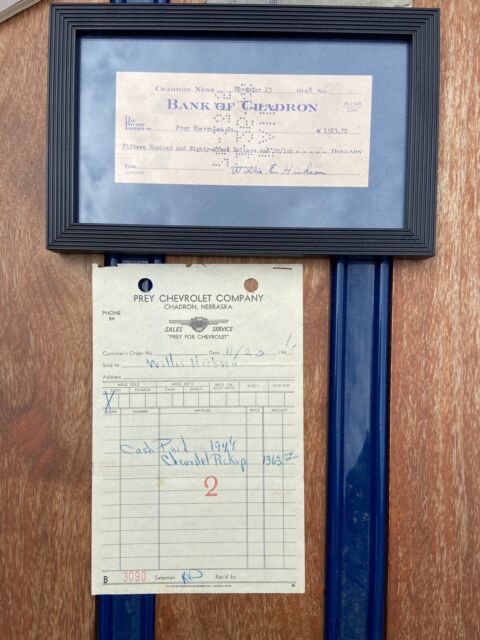 CHADRON, NEBR. November 23 1948 No.
BANK OF CHADRON 76-1345
1041
PAY
TO THE
ORDER OF Prey Chevrolet Co. $ 1583.70
Fifteen Hundred and Eighty-three Dollars and 70/100 - - - - - DOLLARS
FOR
Willis E. Hickson
PREY CHEVROLET COMPANY
CHADRON, NEBRASKA
PHONE
84
SALES SERVICE
"PREY FOR CHEVROLET"
Customer's Order No. Date 11/23 194
Sold to Willis Hickson
Address
MDSE. SOLD MDSE. RET'D REC'D ON MISC'L PAID OUT
CASH CHARGE CASH CREDIT
X
QUAN. NUMBER ARTICLES PRICE AMOUNT
Cash Paid 1948
Chevrolet Pickup 1363
2
B 3090 Salesman Rec'd by